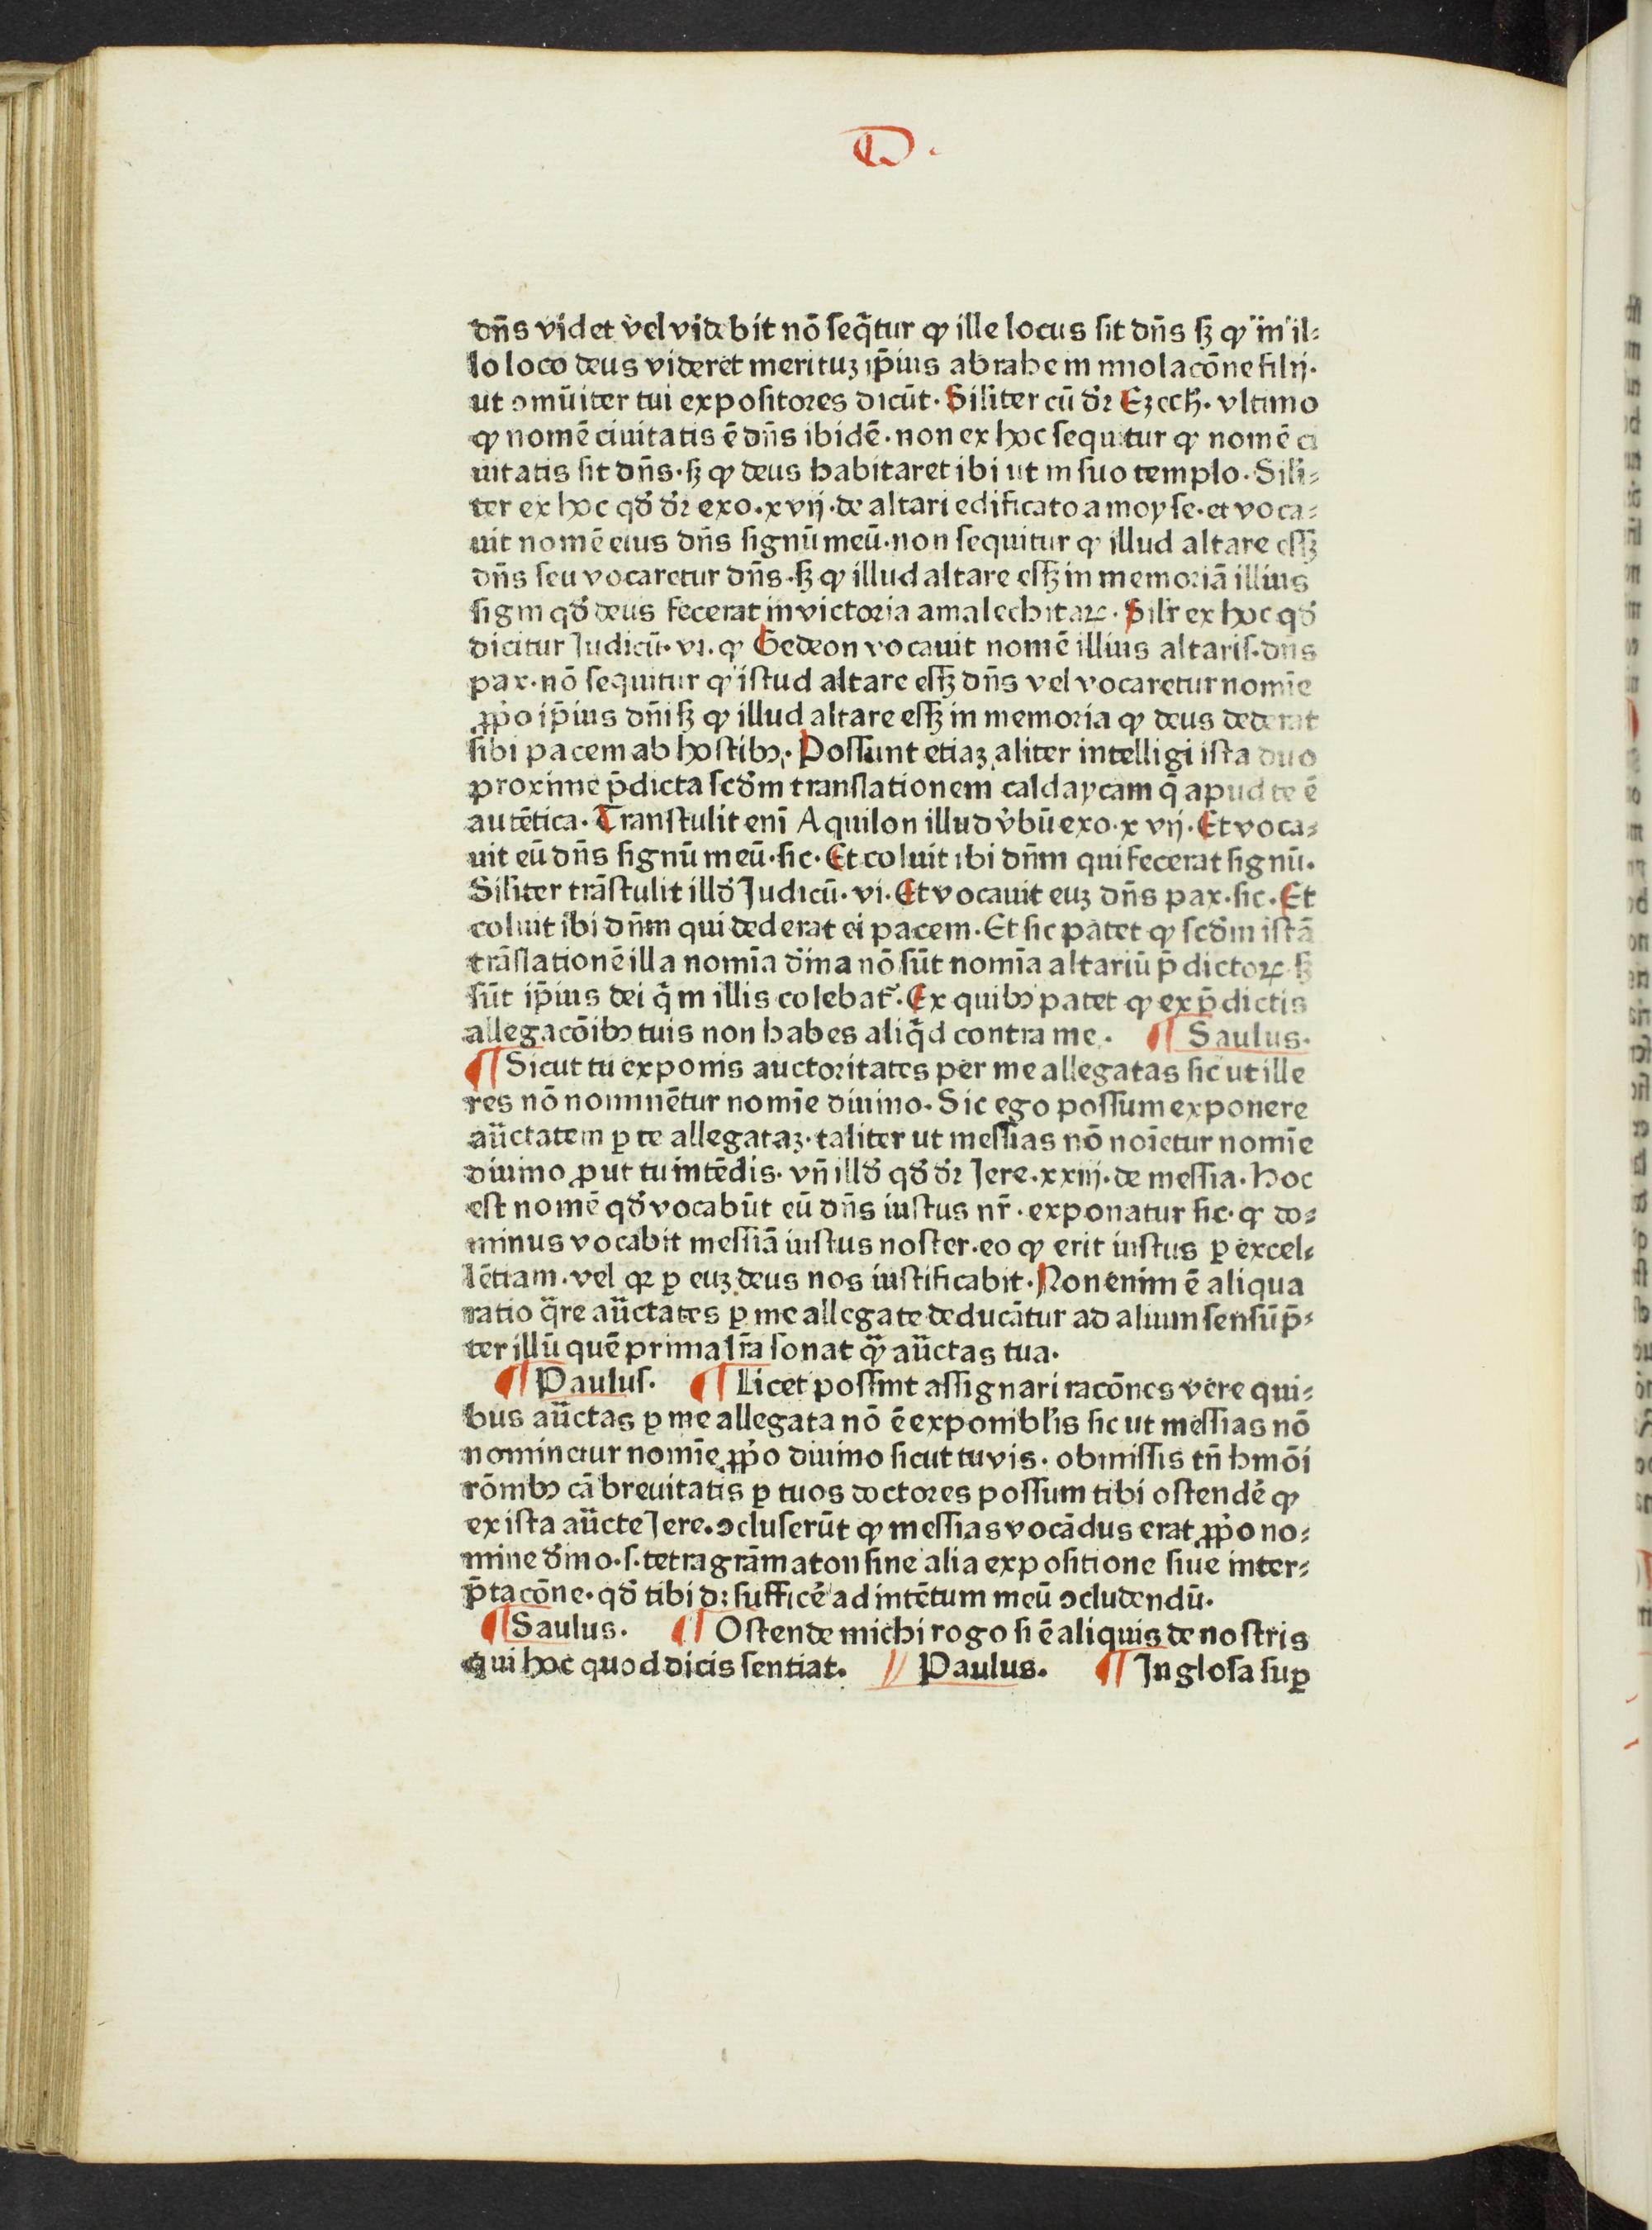 D.
dn̄s videt vel videbit nō seq̄tur ꝙ ille locus sit dn̄s sꝫ ꝙ in il⸗
lo loco deus videret merituꝫ ip̄ius abrahe in īmolacōne filij·
ut ↄmūiter tui expositores dicūt· Siliter cū dr̄ Eꝫech̄· vltimo
ꝙ nomē ciuitatis ē dn̄s ibidē· non ex hoc sequitur ꝙ nomē ci
uitatis sit dn̄s· sꝫ ꝙ deus habitaret ibi ut in suo templo· Sili⸗
ter ex hoc qd̄ dr̄ exo· xvij· de altari edificato a moyse· et voca⸗
uit nomē eius dn̄s signū meū· non sequitur ꝙ illud altare essꝫ
dn̄s seu vocaretur dn̄s· sꝫ ꝙ illud altare essꝫ in memoriā illius
signi qd̄ deus fecerat in victoria amalechitaꝝ· Silr̄ ex hoc qd̄
dicitur Judicū· vi· ꝙ Gedeon vocauit nomē illius altaris· dn̄s
pax· nō sequitur ꝙ istud altare essꝫ dn̄s vel vocaretur nomīe
ꝓpo ip̄ius dn̄i sꝫ ꝙ illud altare essꝫ in memoria ꝙ deus dederat
sibi pacem ab hostibꝰ· Possunt etiaꝫ aliter intelligi ista duo
proxime p̄dicta scd̄m translationem caldaycam q̄ apud te ē
autētica· Transtulit enī Aquilon illud v̄bū exo· xvij· Et voca⸗
uit eū dn̄s signū meū· sic· Et coluit ibi dn̄m qui fecerat signū·
Siliter trāstulit illd̄ Judicū· vi· Et vocauit euꝫ dn̄s pax· sic· Et
coluit ibi dn̄m qui dederat ei pacem· Et sic patet ꝙ scd̄m istā
trāslationē illa nomīa d̄ina nō sūt nomīa altariū p̄dictoꝝ sꝫ
sūt ip̄ius dei q̄ in illis colebat᷑· Ex quibꝰ patet ꝙ ex p̄dictis
allegacōibꝰ tuis non habes aliq̄d contra me· ¶ Saulus·
¶ Sicut tu exponis auctoritates per me allegatas sic ut ille
res nō nominētur nomīe diuino· Sic ego possum exponere
aūctatem ꝑ te allegataꝫ· taliter ut messias nō noīetur nomīe
diuino ꝓut tu intēdis· vn̄ illd̄ qd̄ dr̄ Jere· xxiij· de messia· Hoc
est nomē qd̄ vocabūt eū dn̄s iustus nr̄· exponatur sic· ꝙ do⸗
minus vocabit messiā iustus noster· eo ꝙ erit iustus ꝑ excel⸗
lētiam· vel qꝛ ꝑ euꝫ deus nos iustificabit· Non enim ē aliqua
ratio q̄re aūctates ꝑ me allegate deducātur ad alium sensū p̄⸗
ter illū quē prima lr̄a sonat qᷓꝫ aūctas tua·
¶ Paulus· ¶ Licet possint assignari racōnes vere qui⸗
bus aūctas ꝑ me allegata nō ē exponibl̄is sic ut messias nō
nominetur nomīe ꝓpo diuino sicut tu vis· obmissis tn̄ hmōi
rōnibꝰ cā breuitatis ꝑ tuos doctores possum tibi ostendē ꝙ
ex ista aūcte Jere· ↄcluserūt ꝙ messias vocādus erat ꝓpo no⸗
mine d̄ino· s· tetragrāmaton sine alia expositione siue inter⸗
p̄tacōne· qd̄ tibi dꝫ sufficē ad intētum meū ↄcludendū·
¶ Saulus· ¶ Ostende michi rogo si ē aliquis de nostris
qui hoc quod dicis sentiat· // Paulus· ¶ In glosa suꝑ